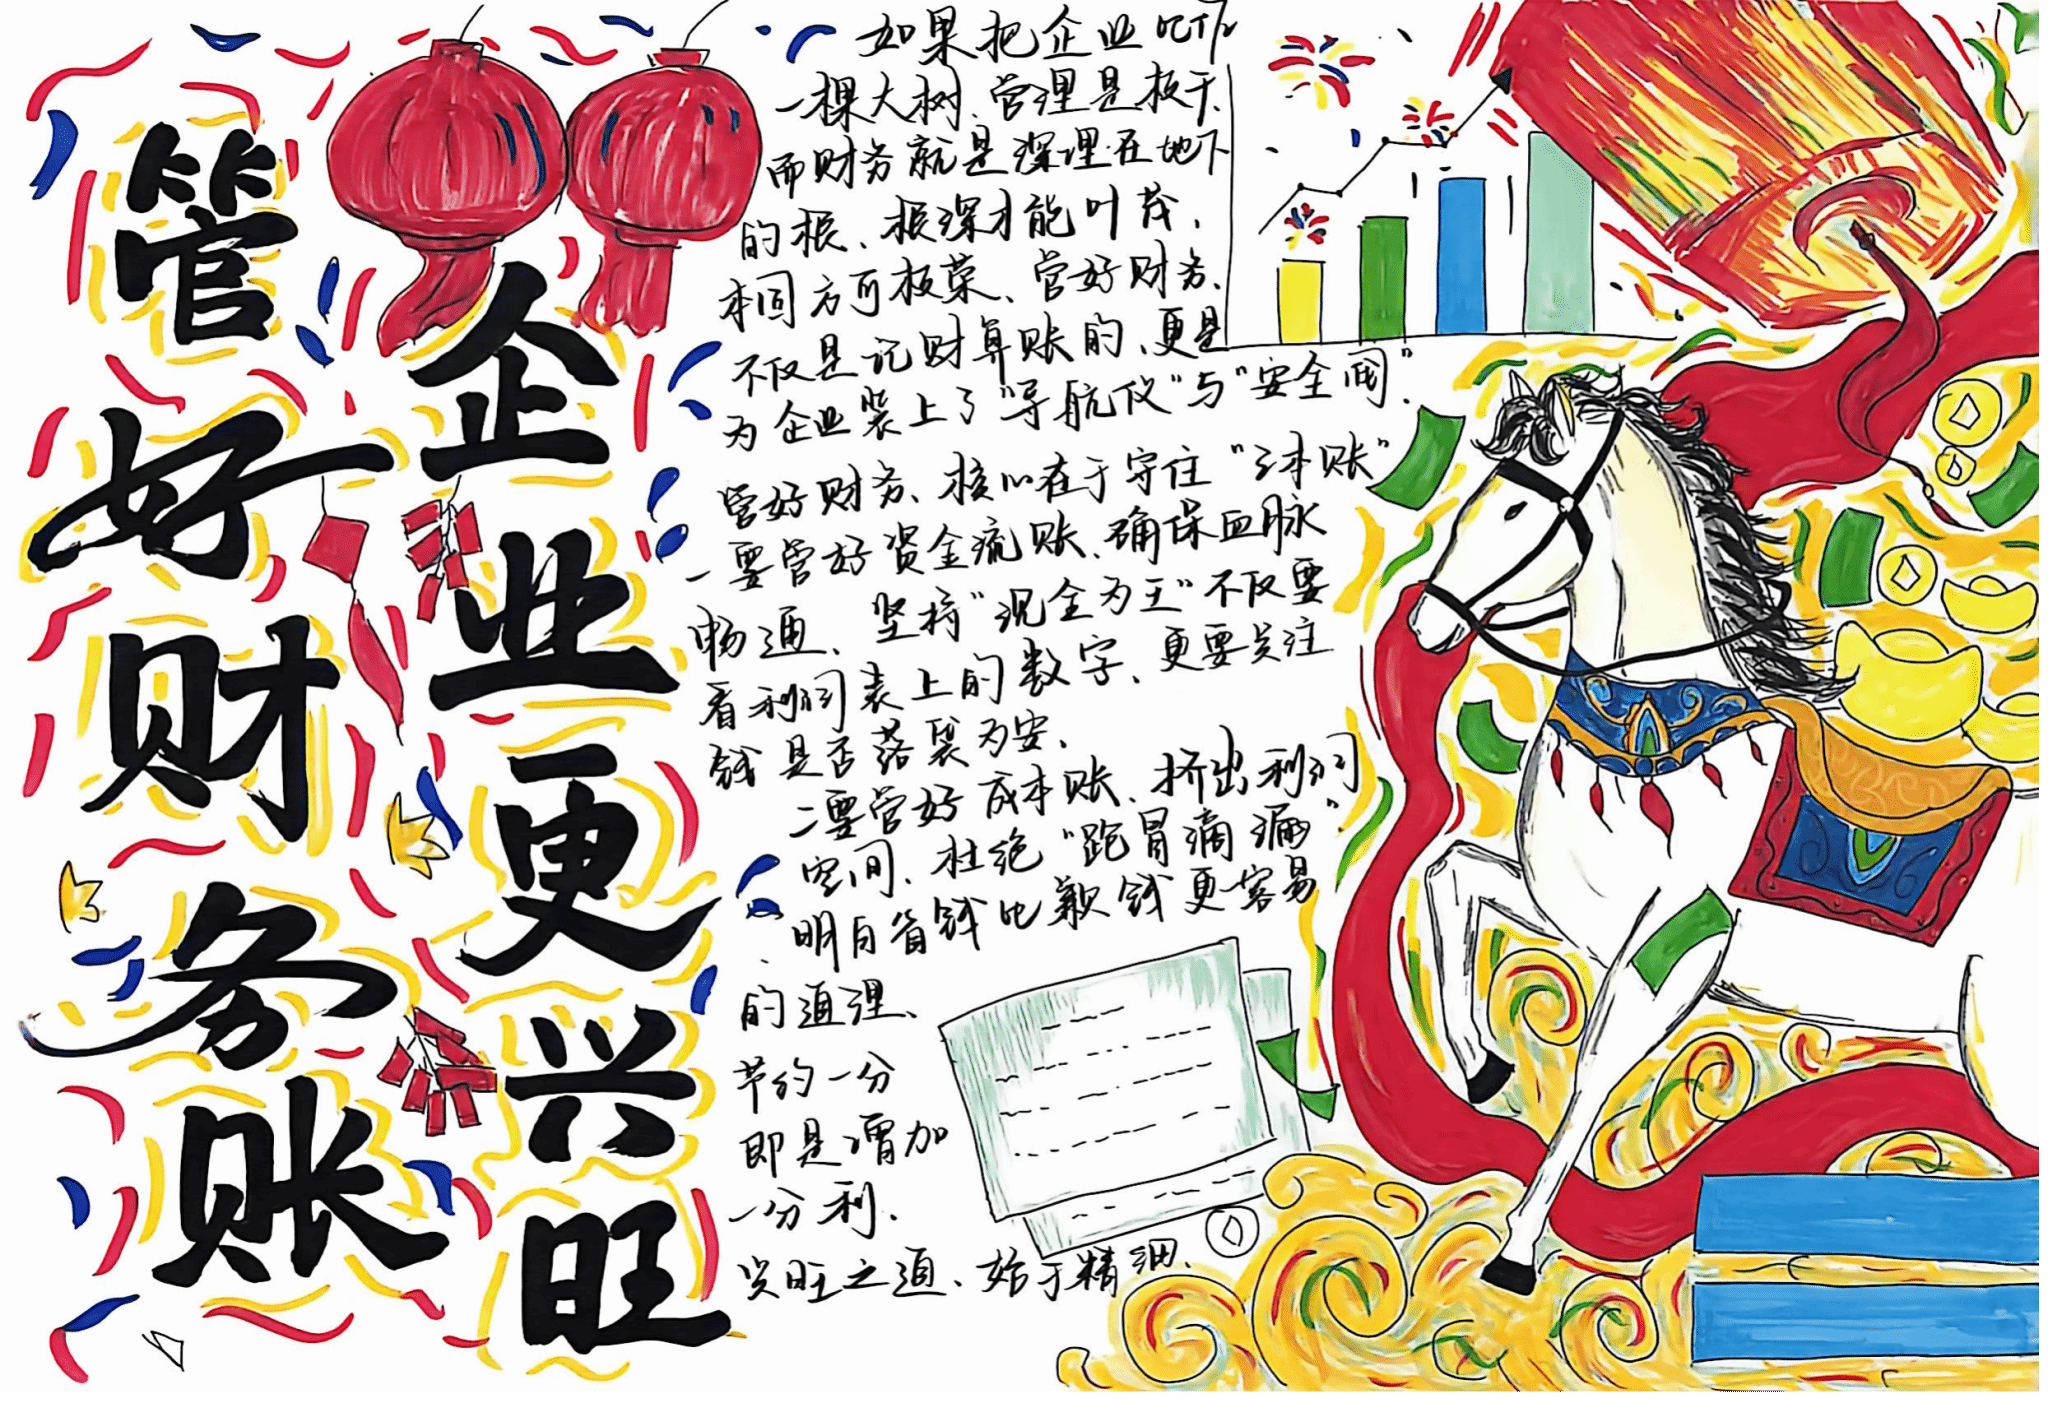 管好财务账
企业更兴旺
如果把企业比作
一棵大树、管理是枝干、
而财务就是深埋在地下
的根、根深才能叶茂，
本固方可枝荣、管好财务、
不仅是记财算账的、更是
为企业装上了“导航仪”与“安全阀”.
管好财务、核心在于守住“三本账”
一要管好资金流账、确保血脉
畅通、坚持“现金为王”不仅要
看利润表上的数字、更要关注
钱是否落袋为安、
二要管好成本账、挤出利润
空间、杜绝“跑冒滴漏”
明白省钱比赚钱更容易
的道理、
节约一分
即是增加
一分利、
兴旺之道、始于精细、